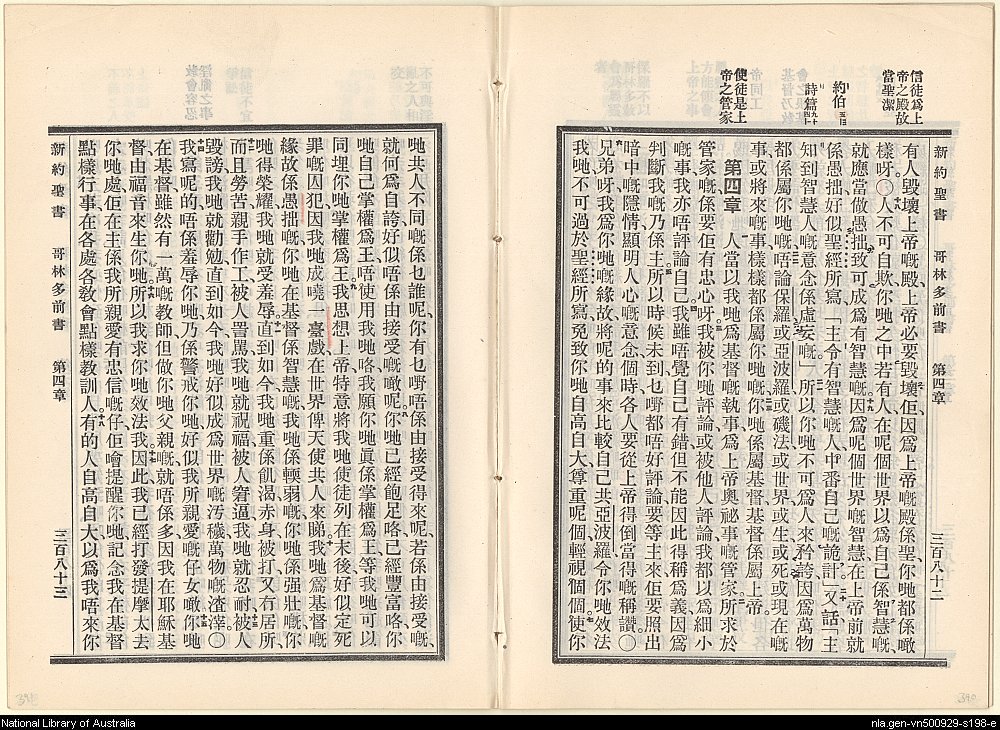 信徒爲上
帝之殿故
當聖潔
約伯
詩篇
使徒是上
帝之管家
新約聖書 哥林多前書 第四章 三百八十二
有人毀壞上帝嘅殿、上帝必要毀壞佢因爲上帝嘅殿係聖你哋都係噉
樣呀、〇人不可自欺你哋之中若有人在呢個世界以爲自己係智慧嘅、
就應當做愚拙致可成爲有智慧嘅、因爲呢個世界嘅智慧、在上帝前就
係愚拙好似聖經所寫「主令有智慧嘅人中番自己嘅詭計」又話「主
知到智慧人嘅意念係虛妄嘅」所以你哋不可爲人來矜誇因爲萬物
都係屬你哋嘅、唔論保羅或亞波羅或磯法或世界或生或死或現在嘅
事或將來嘅事樣樣都係屬你哋嘅、你哋係屬基督基督係屬上帝、
第四章 人當以我哋爲基督嘅執事、爲上帝奧祕事嘅管家所求於
管家嘅係要佢有忠心呀我被你哋評論或被他人評論我都以爲細小
嘅事我亦唔評論自己、我雖唔覺自己有錯但不能因此得稱爲義因爲
判斷我嘅乃係主、所以時候未到乜嘢都唔好評論要等主來佢要照出
暗中嘅隱情顯明人心嘅意念個時各人要從上帝得倒當得嘅稱讚、〇
兄弟呀我爲你哋嘅緣故將呢的事來比較自己共亞波羅令你哋效法
我哋不可過於聖經所寫、免致你哋自高自大尊重呢個輕視個個、使你
哋共人不同嘅係乜誰呢、你有乜嘢唔係由接受得來呢若係由接受嘅、
就何爲自誇好似唔係由接受嘅噉呢、你哋已經飽足咯已經豐富咯、你
哋自己掌權爲王唔使用我哋咯、我願你哋眞係掌權爲王、等我哋可以
同埋你哋掌權爲王、我思想上帝特意將我哋使徒列在末後好似定死
罪嘅囚犯因我哋成曉一臺戲在世界俾天使共人來睇、我哋爲基督嘅
緣故係愚拙嘅你哋在基督係智慧嘅、我哋係輭弱嘅你哋係强壯嘅、你
哋得榮耀我哋就受羞辱、直到如今我哋重係飢渴赤身被打又冇居所、
而且勞苦親手作工被人詈罵我哋就祝福被人窘逼我哋就忍耐、被人
毀謗我哋就勸勉直到如今、我哋好似成爲世界嘅汚穢萬物嘅渣滓、〇
我寫呢的唔係羞辱你哋乃係警戒你哋好似我所親愛嘅仔女噉、你哋
在基督雖然有一萬嘅教師但做你哋父親嘅就唔係多因我在耶穌基
督由福音來生你哋、所以我求你哋效法我、因此我已經打發提摩太去
你哋處佢在主係我所親愛有忠信嘅仔佢噲提醒你哋記念我在基督
點樣行事在各處各教會點樣教訓人、有的人自高自大以爲我唔來你
新約聖書 哥林多前書 第四章 三百八十三